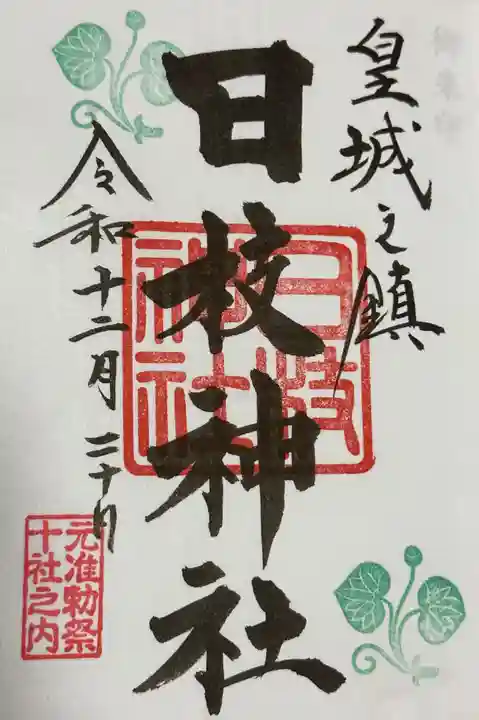 皇城之鎮
日枝神社
日枝神社
令和 十二月 二十日
元准勅祭
十社之内